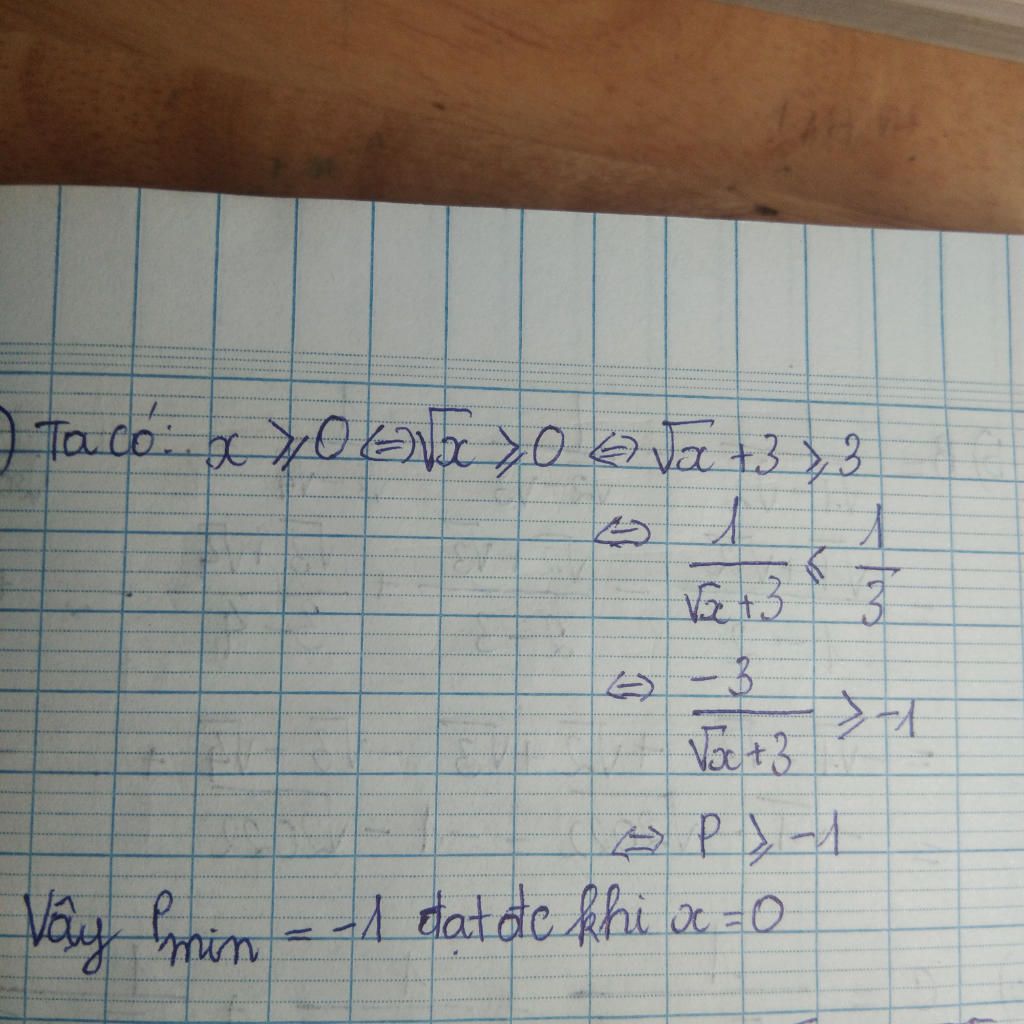 ) Ta có: x ⩾ 0 ⇔ √x ⩾ 0 ⇔ √x + 3 ⩾ 3
⇔ 1/(√x + 3) ⩽ 1/3
⇔ -3/(√x + 3) ⩾ -1
⇔ P ⩾ -1
Vậy Pmin = -1 đạt đc khi x = 0